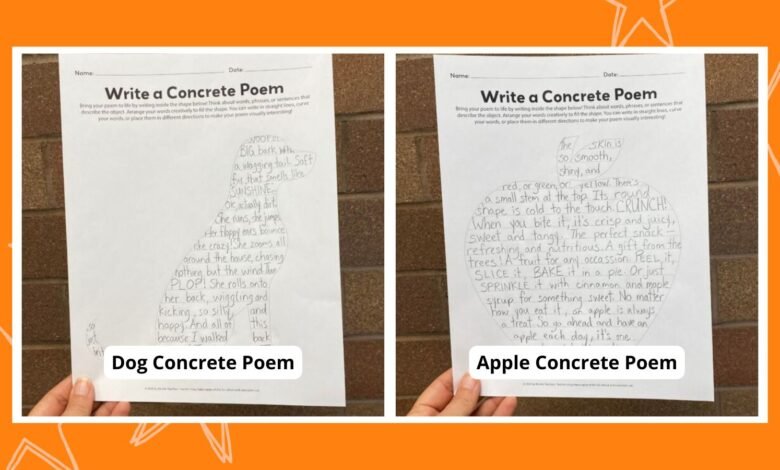 Name: Date:
Write a Concrete Poem
Bring your poem to life by writing inside the shape below! Think about words, phrases, or sentences that
describe the object. Arrange your words creatively to fill the shape. You can write in straight lines, curve
your words, or place them in different directions to make your poem visually interesting!
WOOF!
BIG bark with
a wagging tail. Soft
fur that smells like
SUNSHINE
Or actually dirt.
She runs, she jumps.
Her floppy ears bounce
like crazy! She zooms all
around the house, chasing
nothing but the wind. Then
PLOP! She rolls onto
her back, wiggling and
kicking, so silly, and
happy. And all of this
because I walked back
Dog Concrete Poem
Name: Date:
Write a Concrete Poem
Bring your poem to life by writing inside the shape below! Think about words, phrases, or sentences that
describe the object. Arrange your words creatively to fill the shape. You can write in straight lines, curve
your words, or place them in different directions to make your poem visually interesting!
The skin is
so smooth,
shiny, and
red, or green, or yellow. There's
a small stem at the top. Its round
shape is cold to the touch. CRUNCH!
When you bite it, it's crisp and juicy,
sweet and tangy. The perfect snack –
refreshing and nutritious. A gift from the
trees! A fruit for any occassion. PEEL it,
SLICE it, BAKE it in a pie. Or just
SPRINKLE it with cinnamon and maple
syrup for something sweet. No matter
how you eat it, an apple is always
a treat. So go ahead and have an
apple each day, it's one
Apple Concrete Poem